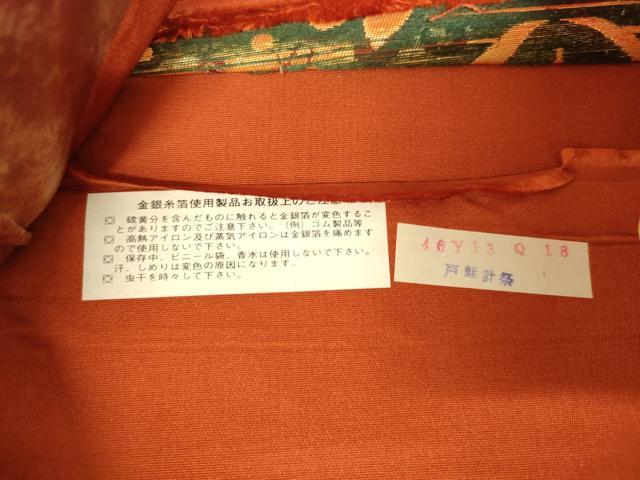 金銀糸箔使用製品お取扱上のご注意
硫黄分を含んだものに触れると金銀箔が変色するこ
とがありますのでご注意下さい。(例)ゴム製品等
高熱アイロン及び蒸気アイロンは金銀箔を痛めます
ので使用しないで下さい。
保存中、ビニール袋、香水は使用しないで下さい。
汗、しめりは変色の原因になります。
虫干を時々して下さい。
46Y13 Q 18